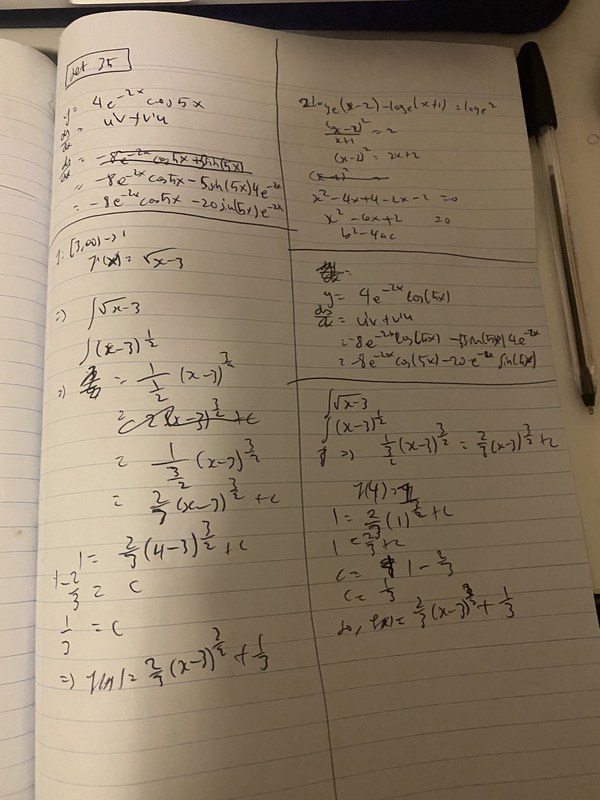 Set 35
y = 4e^-2x cos5x
dy/dx = u'v + v'u
dy/dx = -8e^-2x cos5x + 5sin(5x)
= -8e^-2x cos5x - 5sin(5x) 4e^-2x
= -8e^-2x cos5x - 20sin(5x) e^-2x
f: [3,∞) →
f'(x) = √x-3
=> ∫√x-3
∫(x-3)^1/2
=> = 1/(1/2) (x-3)^3/2
= 2(x-3)^3/2 + c
= 1/(3/2) (x-3)^3/2
= 2/3 (x-3)^3/2 + c
1 = 2/3 (4-3)^3/2 + c
1 - 2/3 = c
1/3 = c
=> f(x) = 2/3 (x-3)^3/2 + 1/3
2loge(x-2) - loge(x+1) = loge 2
(x-2)^2/x+1 = 2
(x-2)^2 = 2x+2
x^2 - 4x + 4 - 2x - 2 = 0
x^2 - 6x + 2 = 0
b^2 - 4ac
dy/dx =
y = 4e^-2x cos(5x)
dy/dx = u'v + v'u
= -8e^-2x cos(5x) - 5sin(5x) 4e^-2x
= -8e^-2x cos(5x) - 20 e^-2x sin(5x)
∫√x-3
∫(x-3)^1/2
=> 1/(3/2) (x-3)^3/2 = 2/3 (x-3)^3/2 + c
f(4) = 1
1 = 2/3 (1)^3/2 + c
1 = 2/3 + c
c = 1 - 2/3
c = 1/3
so, f(x) = 2/3 (x-3)^3/2 + 1/3